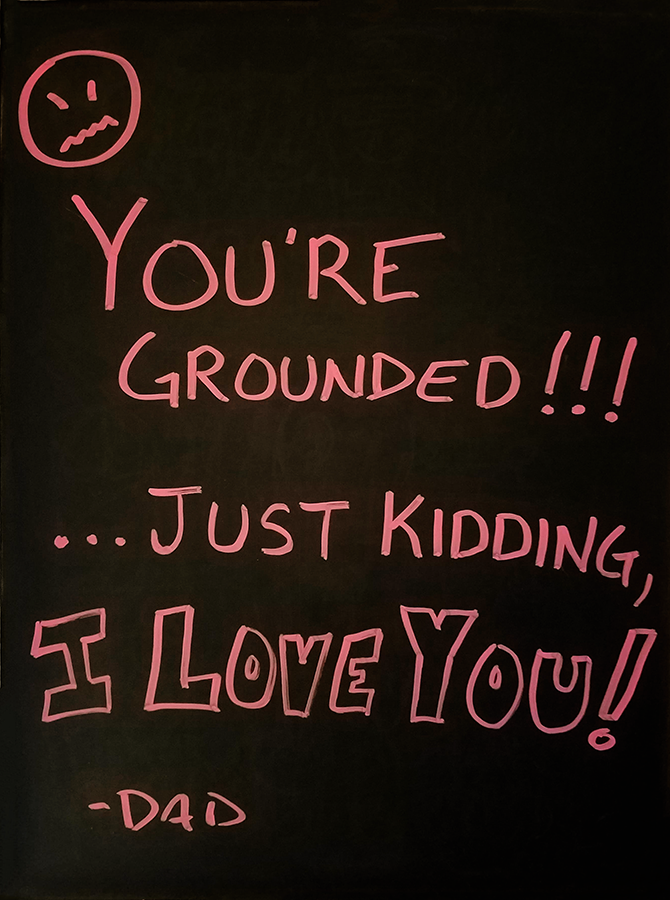 YOU'RE
GROUNDED!!!
...JUST KIDDING,
I LOVE YOU!
-DAD